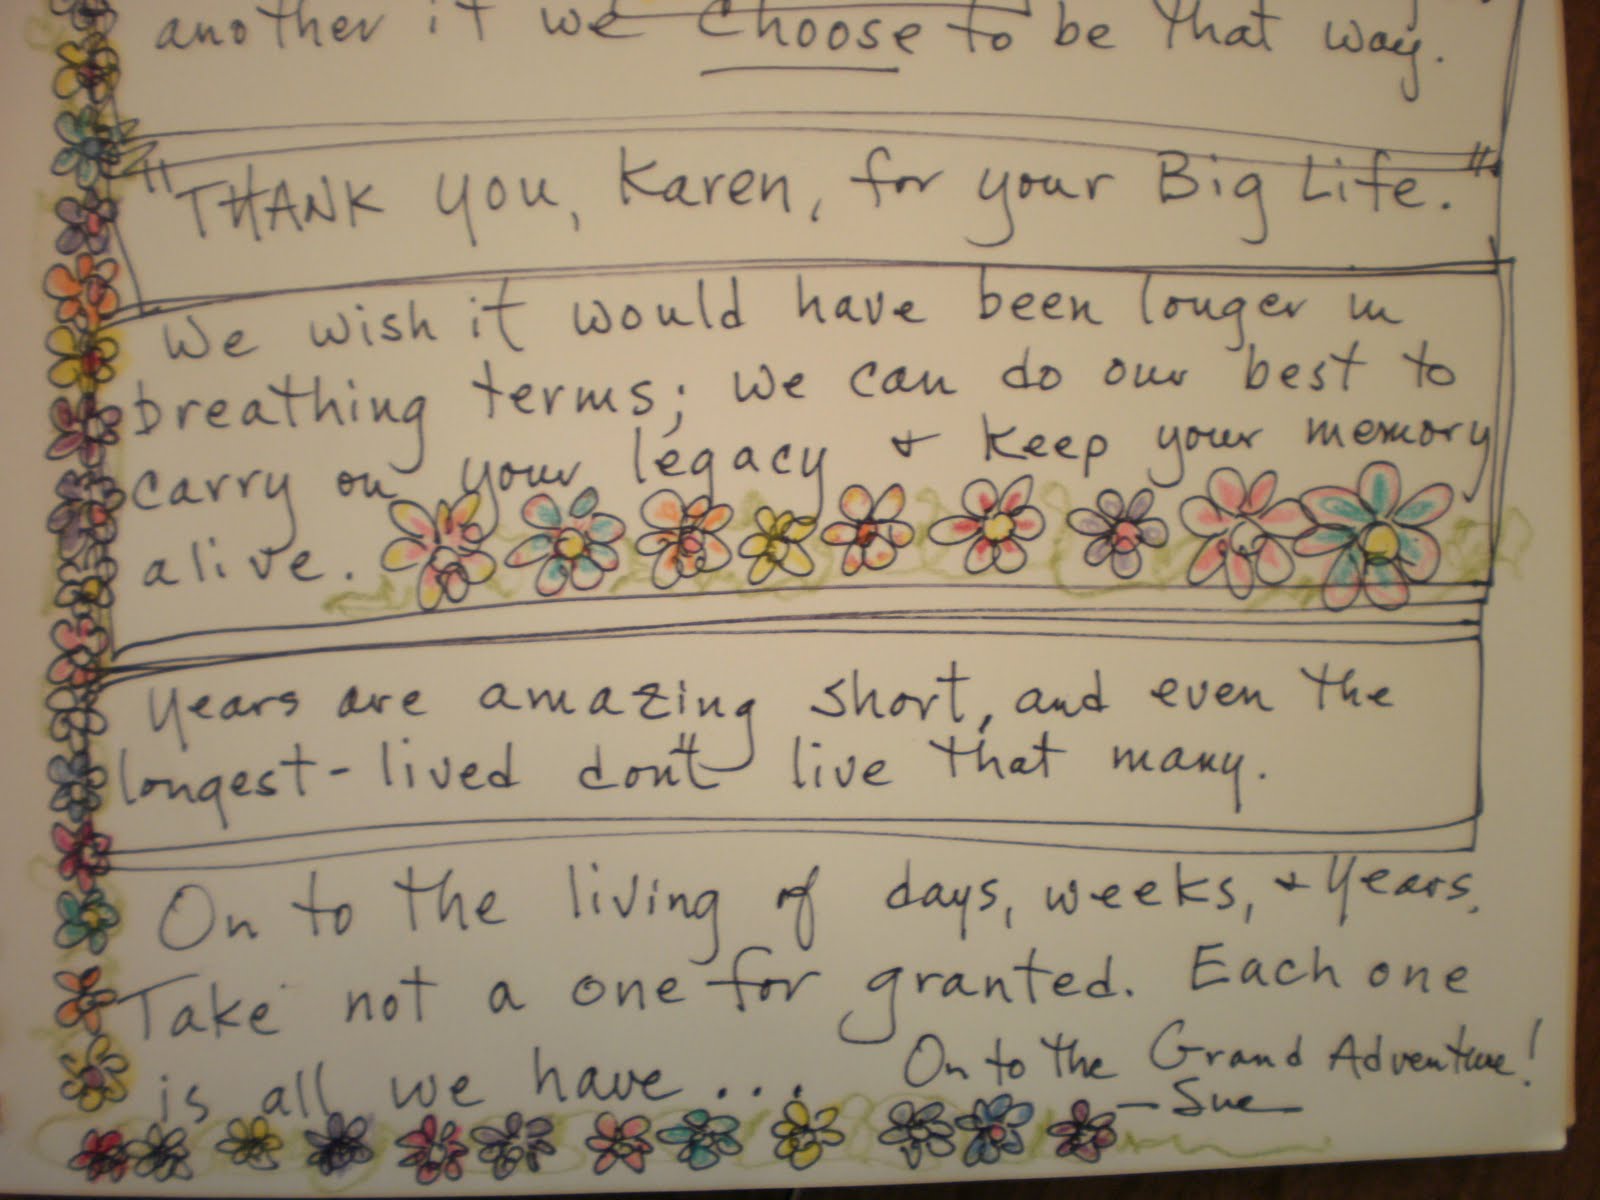 another if we choose to be that way.
"THANK you, Karen, for your Big Life."
We wish it would have been longer in
breathing terms; we can do our best to
carry on your legacy & keep your memory
alive.
Years are amazing short, and even the
longest-lived don't live that many.
On to the living of days, weeks, & years.
Take not a one for granted. Each one
is all we have...
On to the Grand Adventure!
- Sue